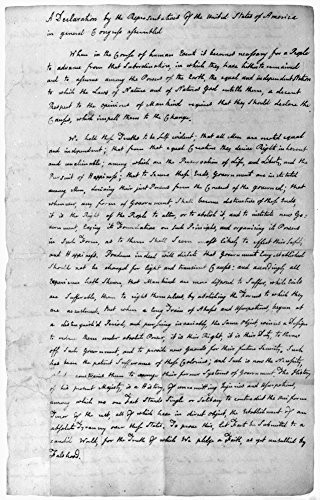 A Declaration by the Representatives of the United States of America
in general Congress assembled
When in the Course of human Events it becomes necessary for a People
to advance from that Subordination, in which they have hitherto remained
and to assume among the Powers of the Earth, the equal and independent Station
to which the Laws of Nature and of Nature's God entitle them, a decent
Respect to the opinions of Mankind requires that they should declare the
Causes, which impell them to the Change.
We hold these Truths to be self evident; that all Men are created equal
and independent; that from that equal Creation they derive Rights inherent
and unalienable; among which are the Preservation of Life, and Liberty, and the
Pursuit of Happiness; that to secure these Ends, Governments are instituted
among Men, deriving their just Powers from the Consent of the governed; that
whenever, any form of Government, shall become destructive of these Ends,
it is the Right of the People to alter, or to abolish it, and to institute new Go-
vernment, laying its Foundation on such Principles, and organizing its Powers
in such Form, as to them shall seem most likely to effect their Safety
and Happiness. Prudence indeed will dictate that Governments long established
should not be changed for light and transient Causes: and accordingly all
Experience hath shewn, that Mankind are more disposed to Suffer, while Evils
are Sufferable, than to right themselves, by abolishing the Forms to which they
are accustomed. But when a long Train of Abuses and Usurpations, begun at
a distinguish'd Period, and pursuing invariably, the same Object, evinces a Design
to reduce them under absolute Power, it is their Right, it is their Duty, to throw
off such Government, and to provide new Guards for their future Security. Such
has been the patient Sufferance of these Colonies; and such is now the Necessity,
which constrains them to expunge their former Systems of Government. The History
of his present Majesty, is a History, of unremitting Injuries and Usurpations,
among which no one Fact stands Single or Solitary to contradict the uniform
Tenor of the rest, all of which have in direct object, the Establishment of an
absolute Tyranny over these States. To prove this, let Facts be Submitted to a
candid World, for the Truth of which We pledge a Faith, as yet unsullied by
Falshood.